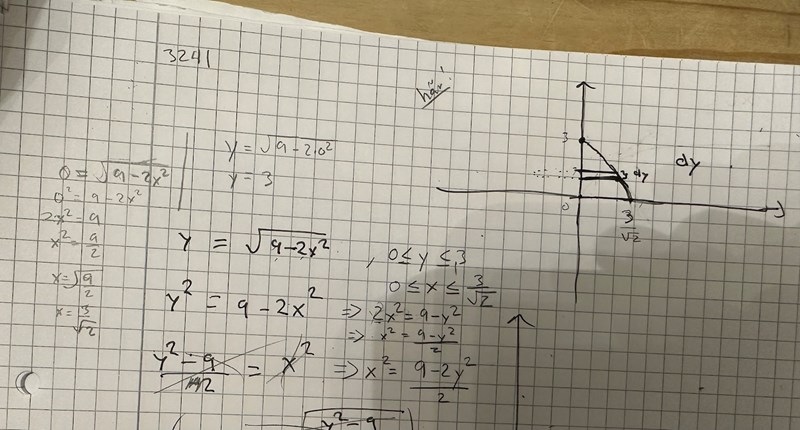 3241
här!
0 = √(9-2x²)
0² = 9-2x²
2x² = 9
x² = 9/2
x = √(9/2)
x = 3/√2
y = √(9-2·0²)
y = 3
y = √(9-2x²) , 0 ≤ y ≤ 3
0 ≤ x ≤ 3/√2
y² = 9 - 2x² => 2x² = 9-y²
=> x² = (9-y²)/2
= x² => x² = (9-2y²)/2
√(y²-9)
3
dy
dy
0
3/√2